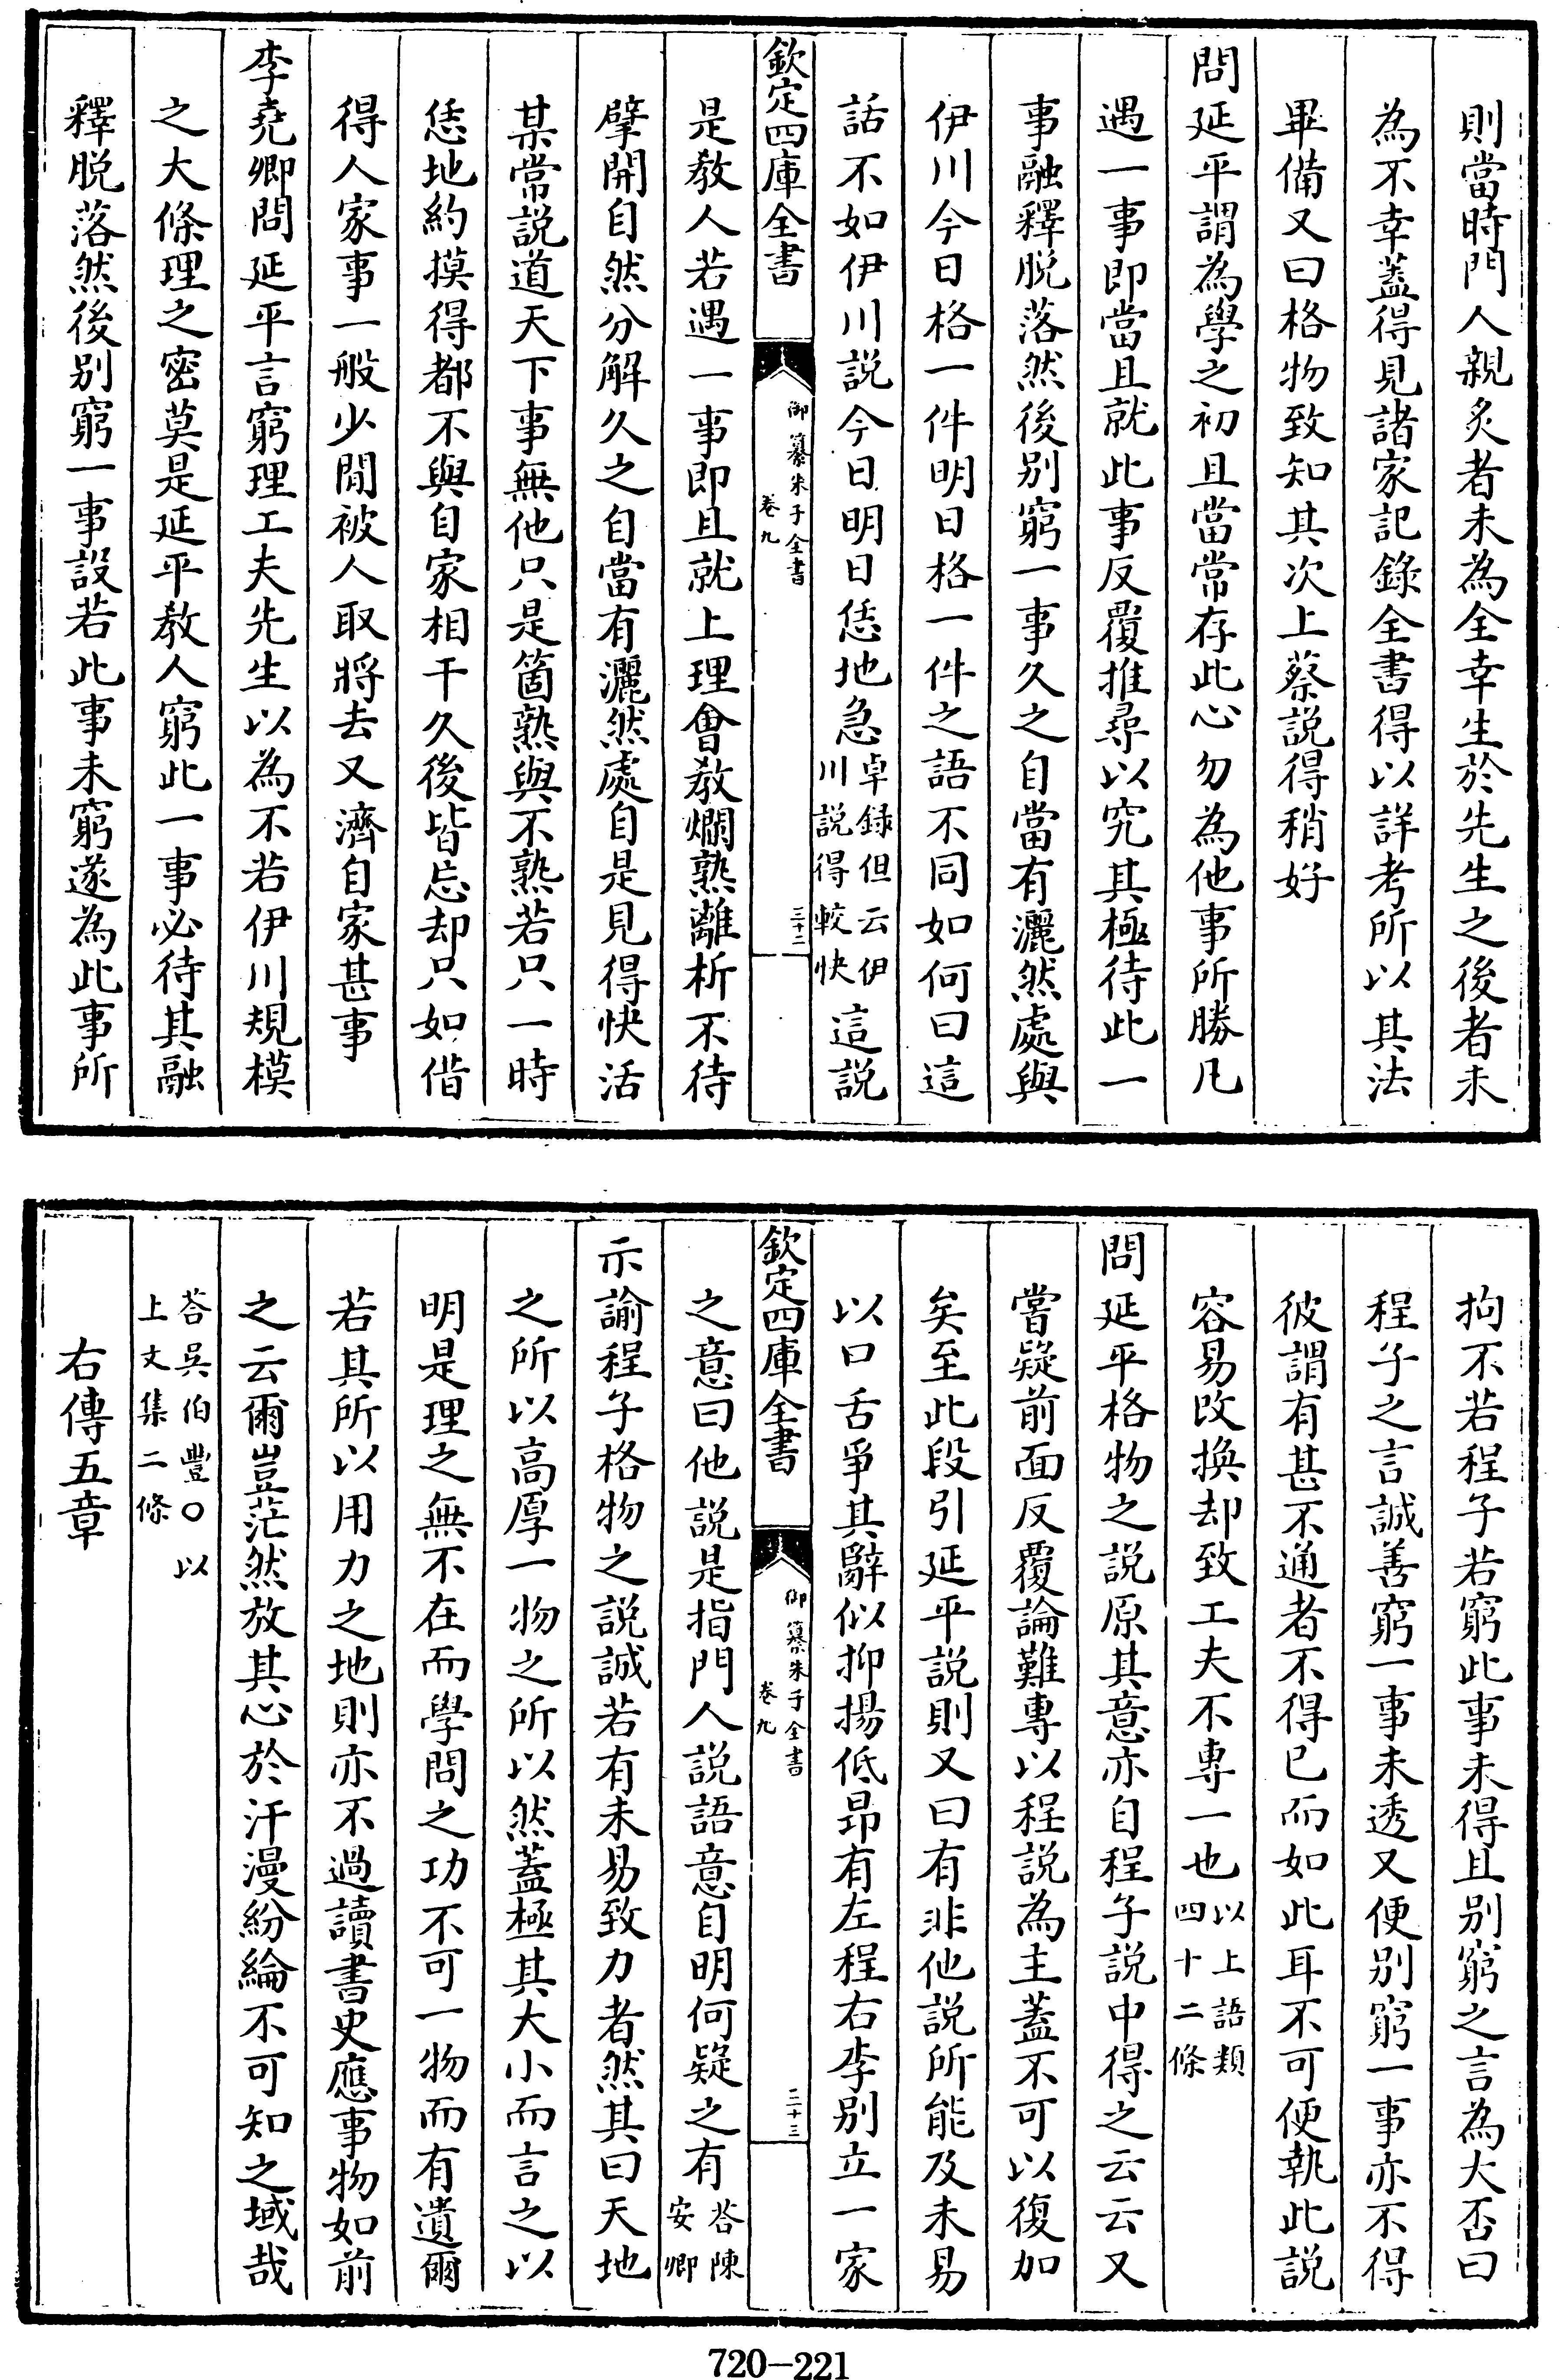 則當時門人親炙者未為全幸生於先生之後者未
為不幸蓋得見諸家記錄全書得以詳考所以其法
畢備又曰格物致知其次上蔡說得稍好
問延平謂為學之初且當常存此心勿為他事所勝凡
遇一事即當且就此事反覆推尋以究其極待此一
事融釋脫落然後别窮一事久之自當有灑然處與
伊川今日格一件明日格一件之語不同如何曰這
話不如伊川說今日明日恁地急卓録但云伊川說得較快這說
欽定四庫全書
御纂朱子全書
卷九
三十二
是教人若遇一事即且就上理會教爛熟離析不待
擘開自然分解久之自當有灑然處自是見得快活
某常說道天下事無他只是箇熟與不熟若只一時
恁地約摸得都不與自家相干久後皆忘却只如偕
得人家事一般少間被人取將去又濟自家甚事
李堯卿問延平言窮理工夫先生以為不若伊川規模
之大條理之密莫是延平教人窮此一事必待其融
釋脫落然後别窮一事設若此事未窮遂為此事所
拘不若程子若窮此事未得且别窮之言為大否曰
程子之言誠善窮一事未透又便别窮一事亦不得
彼謂有甚不通者不得已而如此耳不可便執此說
容易改換却致工夫不專一也以上語類四十二條
問延平格物之說原其意亦自程子說中得之云云又
嘗疑前面反覆論難專以程說為主蓋不可以復加
矣至此段引延平說則又曰有非他說所能及未易
以口舌爭其辭似抑揚低昂有左程右李别立一家
欽定四庫全書
御纂朱子全書
卷九
三十三
之意曰他說是指門人說語意自明何疑之有荅陳安卿
示諭程子格物之說誠若有未易致力者然其曰天地
之所以高厚一物之所以然蓋極其大小而言之以
明是理之無不在而學問之功不可一物而有遺爾
若其所以用力之地則亦不過讀書史應事物如前
之云爾豈茫然放其心於汗漫紛綸不可知之域哉
荅吳伯豐○以上文集二條
右傳五章
720-221